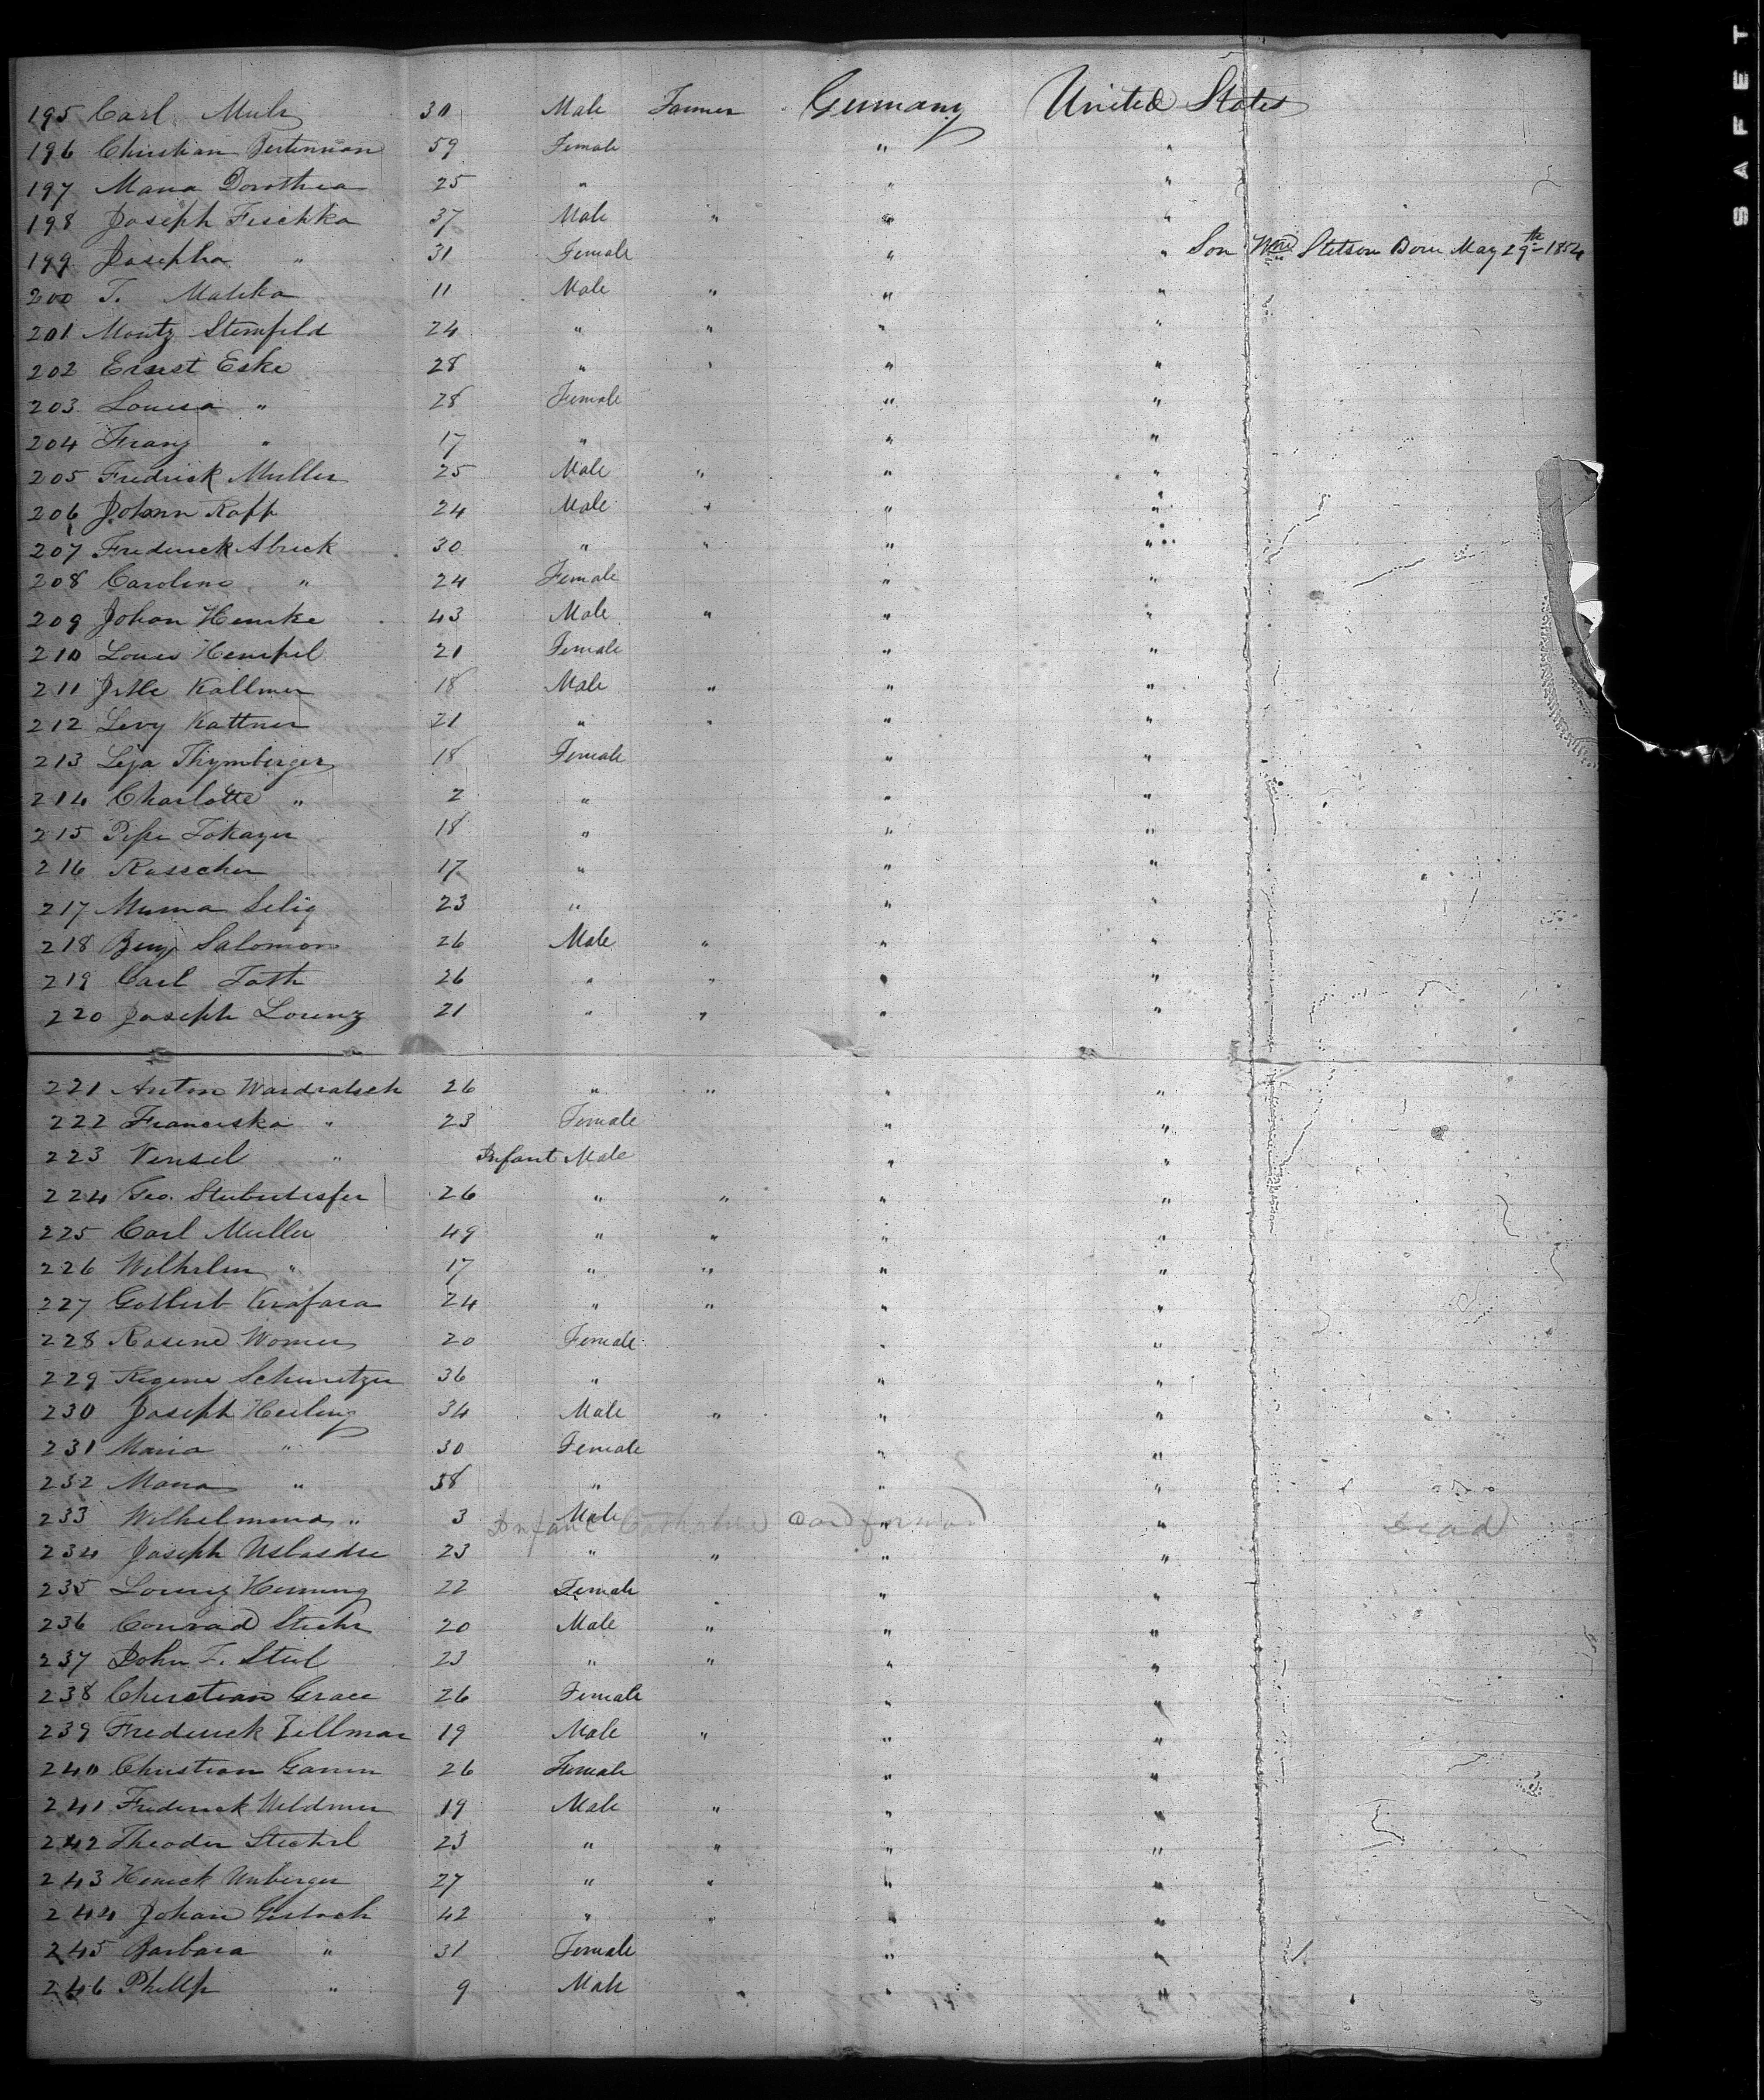 195 Carl Muls 30 Male Farmer Germany United States
196 Christian Bertennan 59 Female " "
197 Maria Dorothea 25 " " "
198 Joseph Fischka 37 Male " " "
199 Josepha " 31 Female " " Son Wm Stetson Born May 29th 1854
200 T. Matska 11 Male " " "
201 Moritz Sternfeld 24 " " " "
202 Ernest Eske 28 " " " "
203 Louisa " 28 Female " "
204 Franz " 17 " " "
205 Fredrick Muller 25 Male " " "
206 Johann Rapp 24 Male " " "
207 Frederick Abrick 30 " " " "
208 Caroline " 24 Female " "
209 Johan Hemke 43 Male " " "
210 Louis Hempel 21 Female " "
211 Kallmer 18 Male " " "
212 Levy Kattner 21 " " " "
213 Leja Thymberger 18 Female " "
214 Charlotte " 2 " " "
215 Pepe Tokayer 18 " " "
216 Rasscher 17 " " "
217 Muma Selig 23 " " "
218 Benj Salomon 26 Male " " "
219 Carl Toth 26 " " " "
220 Joseph Lorenz 21 " " " "
221 Anton Wardratsch 26 " " " "
222 Franciska " 23 Female " "
223 Vensel " Infant Male " "
224 Geo. 26 " " " "
225 Carl Muller 49 " " " "
226 Wilhelm " 17 " " " "
227 Gottlieb Krafara 24 " " " "
228 Rosene Womer 20 Female " "
229 Regine Schuretzer 36 " " "
230 Joseph Heiling 34 Male " " "
231 Maria " 30 Female " "
232 Maria " 38 " " "
233 Wilhelmina " 3 Male " "
Infant Catharine dead
234 Joseph 23 " " " "
235 Lorenz Henning 22 Female " "
236 Conrad Stiehr 20 Male " " "
237 John F. Stiel 23 " " " "
238 Christian Grace 26 Female " "
239 Frederick Tillmar 19 Male " " "
240 Christian Gamm 26 Female " "
241 Frederick Weldmer 19 Male " " "
242 Theoder Stechel 23 " " " "
243 Henick Unberger 27 " " " "
244 Johan Gerlach 42 " " " "
245 Barbara " 31 Female " "
246 Phillip " 9 Male " "
SAFET